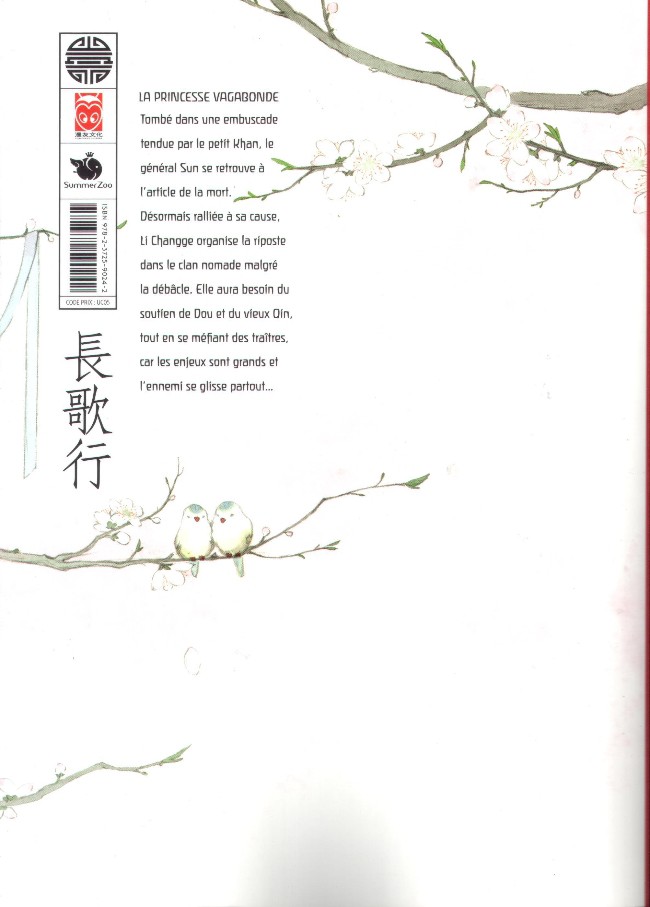 漫友文化
SummerZoo
ISBN 978-2-3725-9024-2
CODE PRIX : UC05
長歌行
LA PRINCESSE VAGABONDE
Tombé dans une embuscade
tendue par le petit Khan, le
général Sun se retrouve à
l'article de la mort.
Désormais ralliée à sa cause,
Li Changge organise la riposte
dans le clan nomade malgré
la débâcle. Elle aura besoin du
soutien de Dou et du vieux Qin,
tout en se méfiant des traîtres,
car les enjeux sont grands et
l'ennemi se glisse partout...